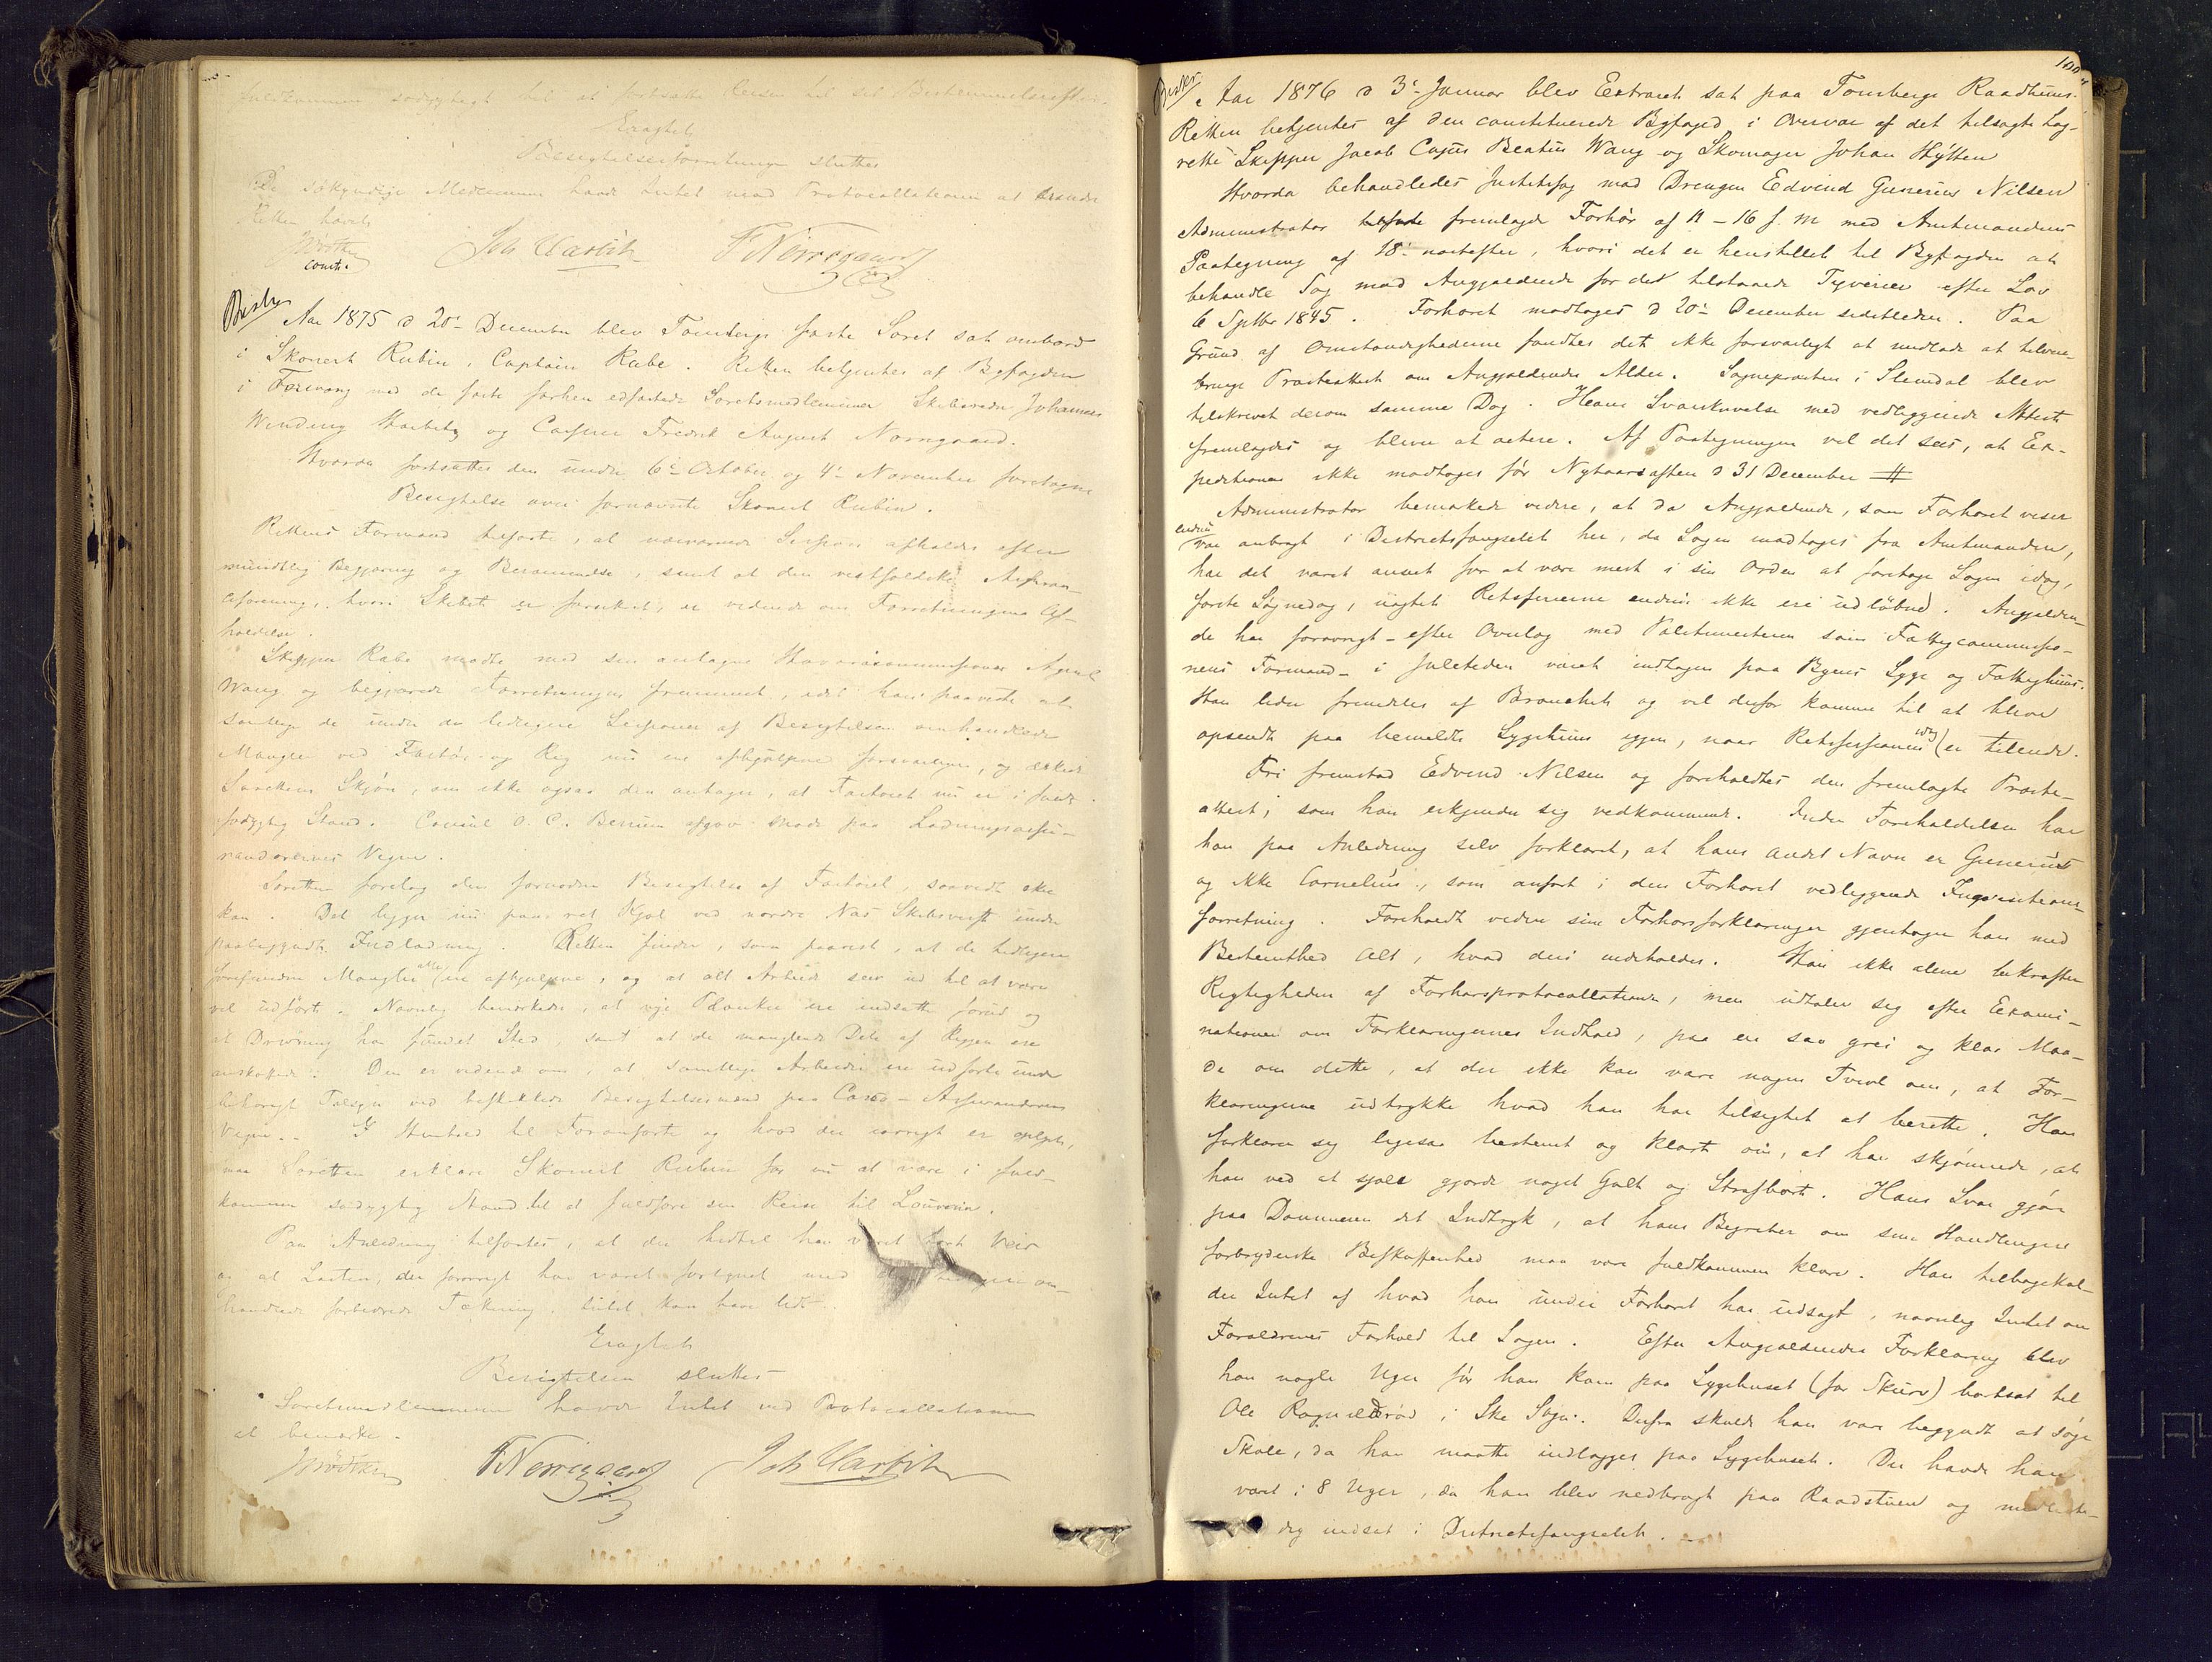 fuldkommen sødygtigt til at fortsætte Reisen til sit Bestemmelsessted.
Eragtet
Besigtelsesforretningen sluttes
De søkyndige Medlemmer havde Intet mod Protocollationen at erindre
Retten hævet
const. Joh Harbitz F Nørregaard
Aar 1875 d 20de December blev Tønsbergs faste Søret sat ombord
i Skonert Rubin, Captain Rabe. Retten betjentes af Byfogden
i Forening med de faste forhen edfæstede Søretsmedlemmer Skibsreder Johannes
Winding Harbitz og Casper Fredrik August Nørregaard.
Hvorda fortsattes den under 6te October og 4de November foretagne
Besigtelse over fornævnte Skonert Rubin.
Rettens Formand tilførte, at nærværende Session afholdes efter
mundtlig Begjæring og Berammelse, samt at den vestfoldske Assuran-
ceforening, hvori Skibet er forsikret, er vidende om Forretningens Af-
holdelse.
Skipper Rabe mødte med sin antagne Havaricommissionær Agent
Wang og begjærede Forretningen fremmet, idet han paaviste at
samtlige de under de tidligere Sessioner af Besigtelsen omhandlede
Mangler ved Fartøi og Rig nu ere afhjulpne forsvarligen, og æskede
Sørettens Skjøn, om ikke ogsaa den antager, at Fartøiet nu er i fuld
sødygtig Stand. Consul O. C. Bernum afgav Møde paa Ladningsassu-
randørernes Vegne.
Søretten foretog den fornødne Besigtelse af Fartøiet, saavidt ske
kan. Det ligger nu paa ret Kjøl ved nordre Næs Skibsverft under
paabegyndt Indladning. Retten finder, som paavist, at de tidligere
forefundne Mangler alle ere afhjulpne, og at alt Arbeide seer ud til at være
vel udført. Navnlig bemærkedes, at nye Planker ere indsatte forud og
at Drivning har fundet Sted, samt at de manglende Dele af Riggen ere
anskaffede. Den er vidende om, at samtlige Arbeider ere udførte under
behørigt Tilsyn ved beskikkede Besigtelsesmænd paa Casco-Assurandørens
Vegne. I Henhold til Foranførte og hvad der iøvrigt er oplyst,
maa Søretten erklære Skonert Rubin for nu at være i fuld-
kommen sødygtig Stand til at fuldføre sin Reise til Louviers.
Paa Anledning tilførtes, at der hidtil har været tørt Veir
og at Lasten, der forøvrigt har været forsynet med
handlede forbedrede Tækning, Intet kan have lidt.
Eragtet
Besigtelsen sluttes
Søretsmedlemmerne havde Intet ved Protocollationen
at bemærke.
F Nørregaard Joh Harbitz
100
Aar 1876 d 3de Januar blev Extraret sat paa Tønsbergs Raadhuus.
Retten betjentes af den constituerede Byfoged i Overvær af det tilsagte Lag-
rette Skipper Jacob Cajus Beatus Wang og Skomager Johan Hytten
Hvorda behandledes Justitssag mod Drengen Edvind Gunerius Nilsen
Administrator fremlagde Forhør af 11-16 f. M. med Amtmandens
Paategning af 18de næstefter, hvori det er henstillet til Byfogden at
behandle Sag mod Angjældende for det tilstaaede Tyverier efter Lov
6 Septbr 1845. Forhøret modtoges d 20de December sidstleden. Paa
Grund af Omstændighederne fandtes det ikke forsvarligt at undlade at tilveie-
bringe Præsteattest om Angjældendes Alder. Sognepræsten i Slemdal blev
tilskrevet derom samme Dag. Hans Svarskrivelse med vedliggende Attest
fremlagdes og bliver at actere. Af Paategningen vil det sees, at Ex-
peditionen ikke modtoges før Nytaarsaften d 31 December
Administrator bemærkede videre, at da Angjældende, som Forhøret viser
endnu var anbragt i Districtsfængselet her, da Sagen modtoges fra Amtmanden,
har det været anseet for at være mest i sin Orden at foretage Sagen idag,
første Søgnedag, uagtet Retsferierne endnu ikke ere udløbne. Angjælden-
de har forøvrigt - efter Overlæg med Politimesteren som Fattigcommissio-
nens Formand - i Juletiden været indtagen paa Byens Syge og Fattighuus.
Han lider fremdeles af Bronchit og vil derfor komme til at blive
opsendt paa bemeldte Sygehuus igjen, naar Retssessionen idag er tilende.
Fri fremstod Edvind Nilsen og foreholdtes den fremlagte Præste-
attest, som han erkjender sig vedkommende. Under Foreholdelsen har
han paa Anledning selv forklaret, at hans andet Navn er Gunerius
og ikke Cornelius, som anført i den Forhøret vedliggende Inqvisitions-
forretning. Foreholdt videre sine Forhørsforklaringer gjentager han med
Bestemthed Alt, hvad deri indeholdes. Han ikke alene bekræfter
Rigtigheden af Forhørsprotocollationen, men udtaler sig efter Exami-
nationen om Forklaringernes Indhold, paa en saa grei og klar Maa-
de om dette, at der ikke kan være nogen Tvivl om, at For-
klaringerne udtrykke hvad han har tilsigtet at berette. Han
forklarer sig ligesaa bestemt og klart om, at han skjønnede, at
han ved at stjæle gjorde noget Galt og Strafbart. Hans Svar gjør
paa Dommeren det Indtryk, at hans Begreber om sine Handlingers
forbryderske Beskaffenhed maa være fuldkommen klare. Han tilbagekal-
der Intet af hvad han under Forhøret har udsagt, navnlig Intet om
Forældrenes Forhold til Sagen. Efter Angjældendes Forklaring blev
han nogle Uger før han kom paa Sygehuset (for Skurv) bortsat til
Ole Ragnildrød i Ske Sogn. Derfra skulde han være begyndt at søge
Skole, da han maatte indlægges paa Sygehuset. Der havde han
været i 8 Uger, da han blev nedbragt paa Raadstuen og
dig indsat i Districtsfængselet.